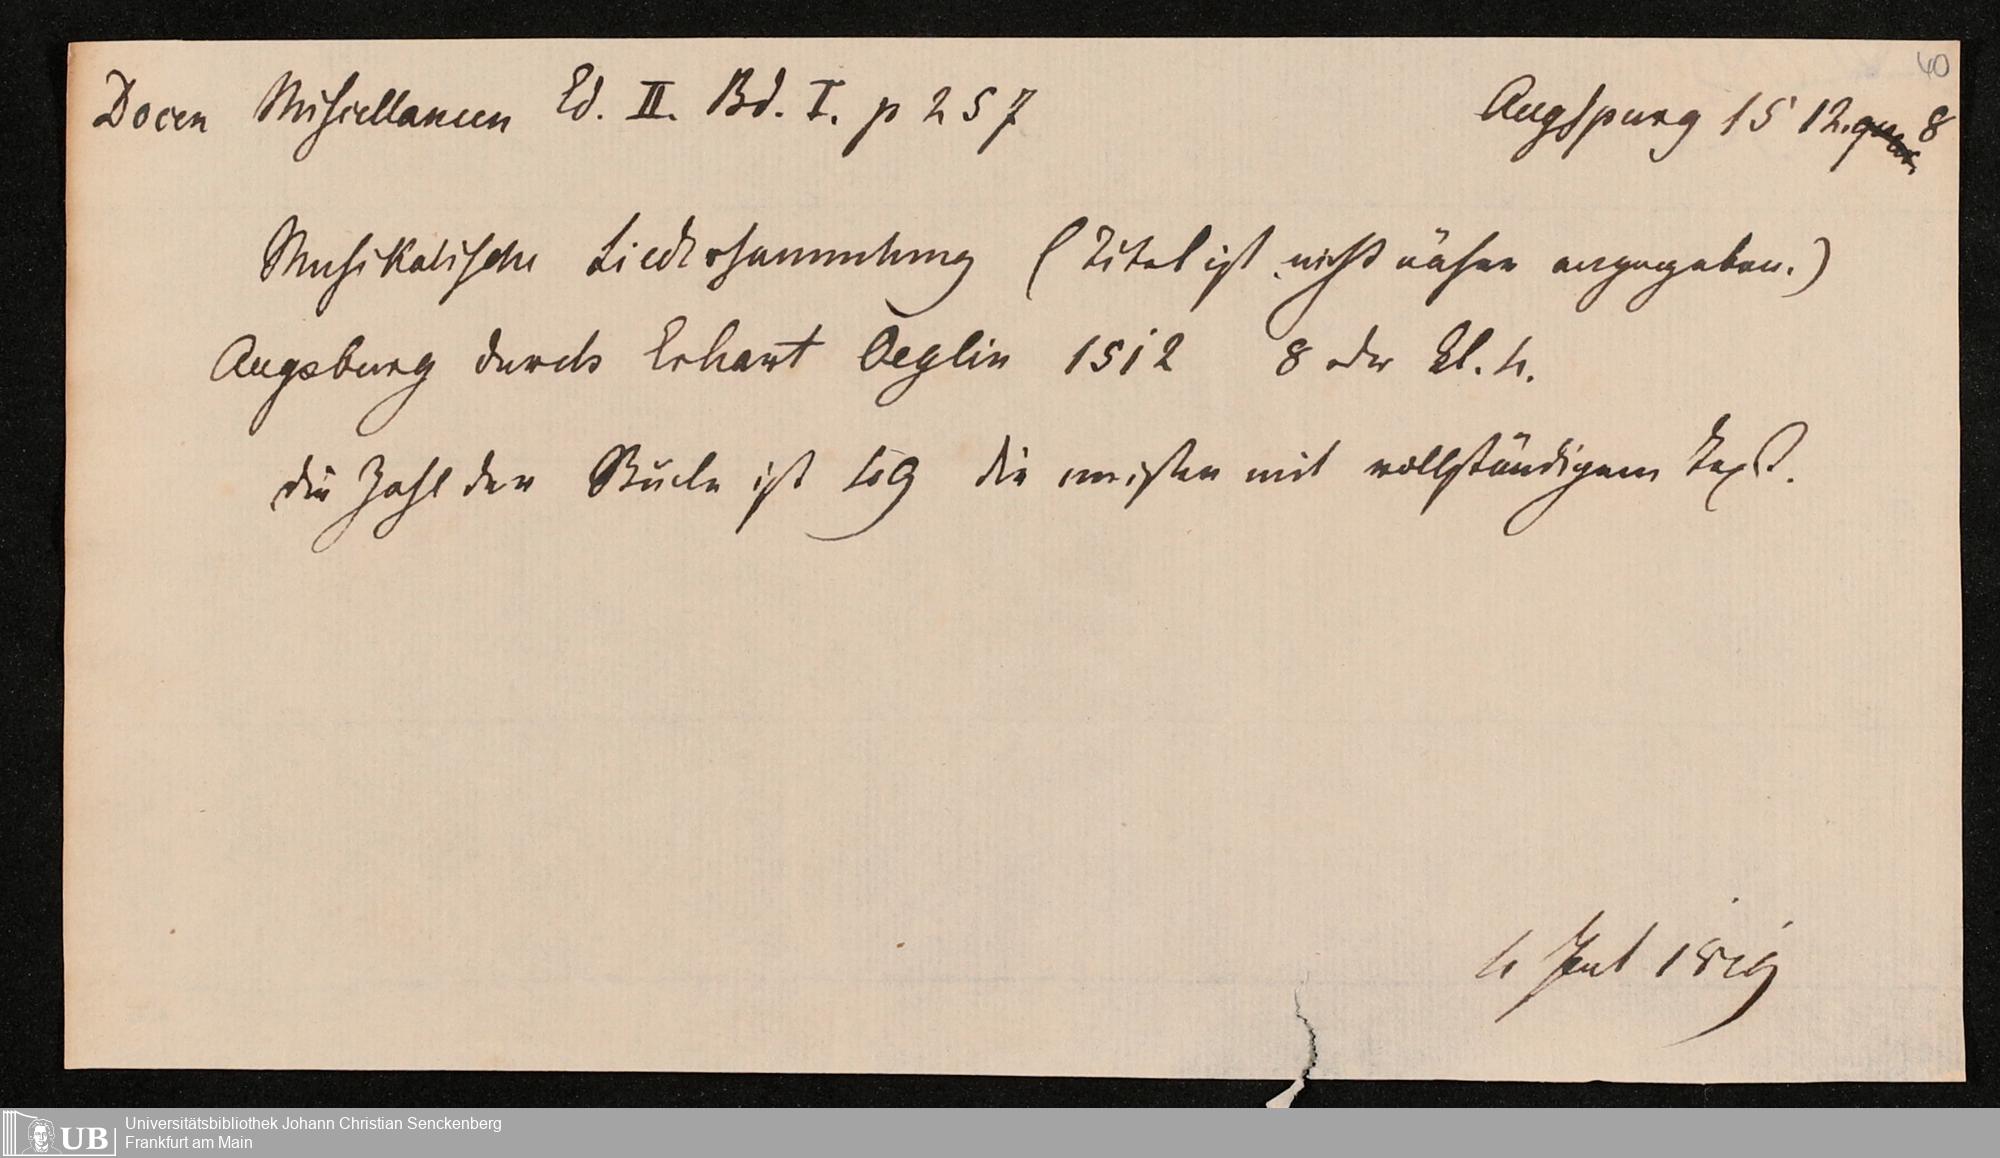 40
Docen Miscellaneen Ed. II. Bd. I. p 257 Augspurg 1512. quer 8
Musikalische Liedersammlung (Titel ist nicht näher angegeben.)
Augsburg durch Erhart Oeglin 1512 8 oder kl. 4.
die Zahl der Stücke ist 49 die meisten mit vollständigem Text.
4
Universitätsbibliothek Johann Christian Senckenberg
Frankfurt am Main
UB